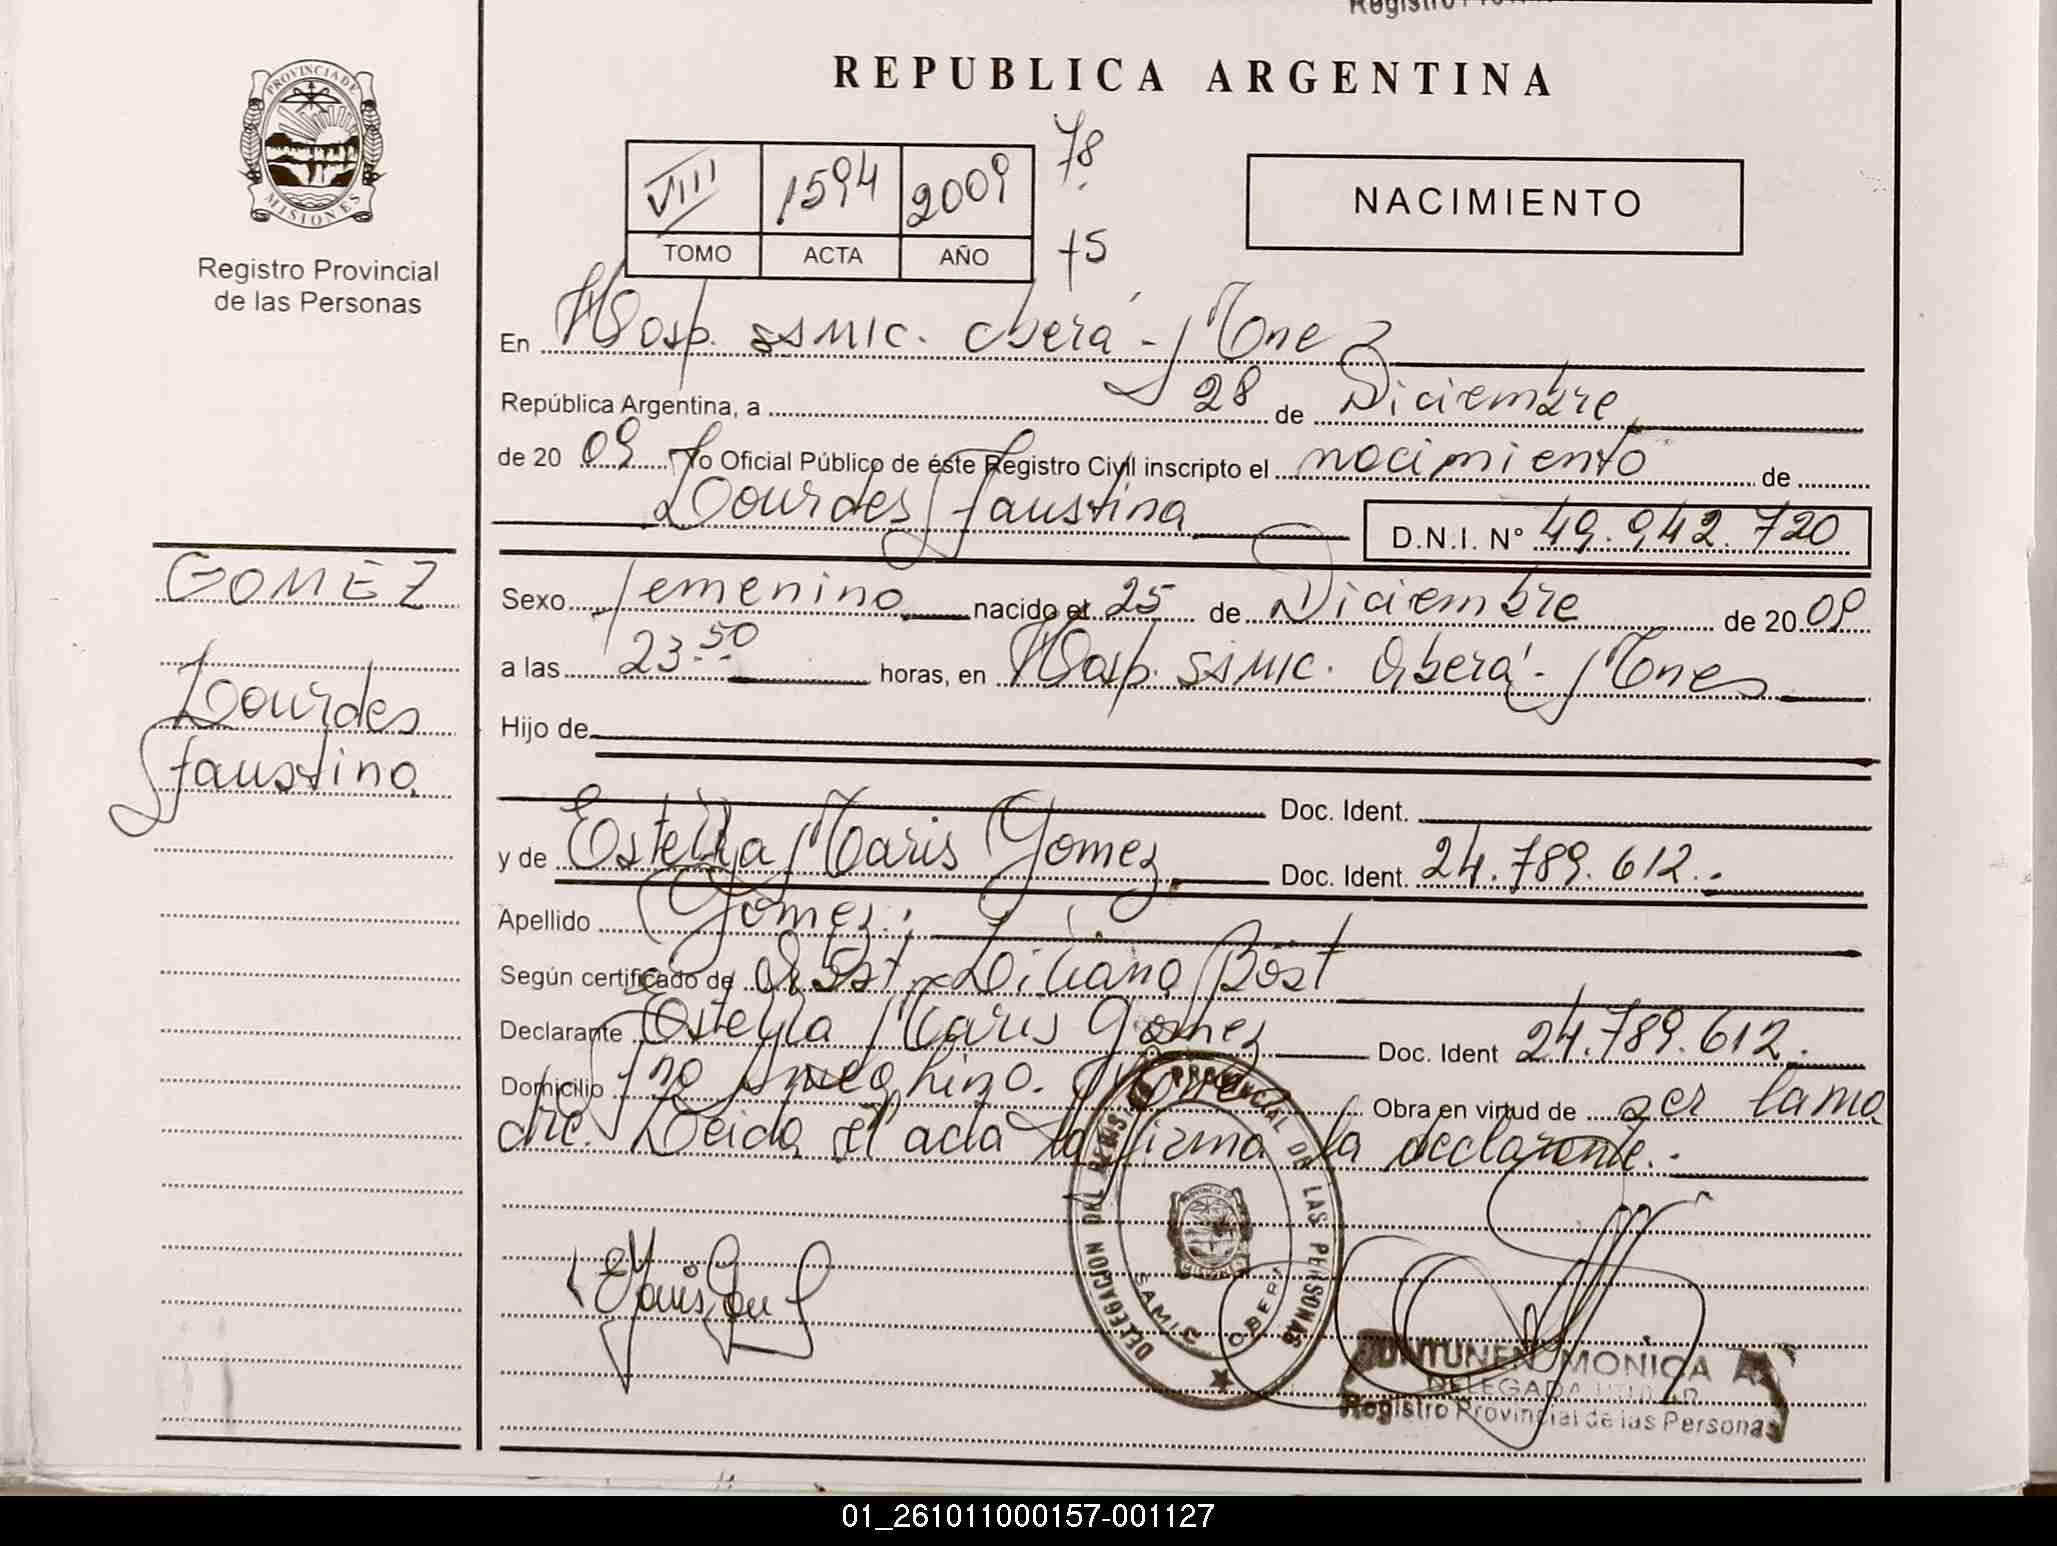 REPUBLICA ARGENTINA
PROVINCIA DE
MISIONES
Registro Provincial
de las Personas
VIII 1594 2009 78
TOMO ACTA AÑO 75
NACIMIENTO
En Hosp. SSMIC. Oberá - Mnes
República Argentina, a 28 de Diciembre
de 20 09 Yo Oficial Público de éste Registro Civil inscripto el nacimiento de
Lourdes Faustina D.N.I. N° 49.942.720
GOMEZ
Lourdes
Faustina
Sexo femenino nacido el 25 de Diciembre de 20 09
a las 23.50 horas, en Hosp. SSMIC. Oberá - Mnes
Hijo de
Doc. Ident.
y de Estella Maris Gomez Doc. Ident. 24.789.612.
Apellido Gomez.
Según certificado de Obst. Liliana Bost
Declarante Estella Maris Gomez Doc. Ident 24.789.612.
Domicilio Fno Ameghino. Obra en virtud de ser la ma
dre. Leida el acta la firma la declarante.
DELEGACION DEL REGIS PROVINCIAL DE LAS PERSONAS
MISIONES
S.A.M.I.C. OBERA
MONICA A
DELEGADA TITULAR
Registro Provincial de las Personas
01_261011000157-001127